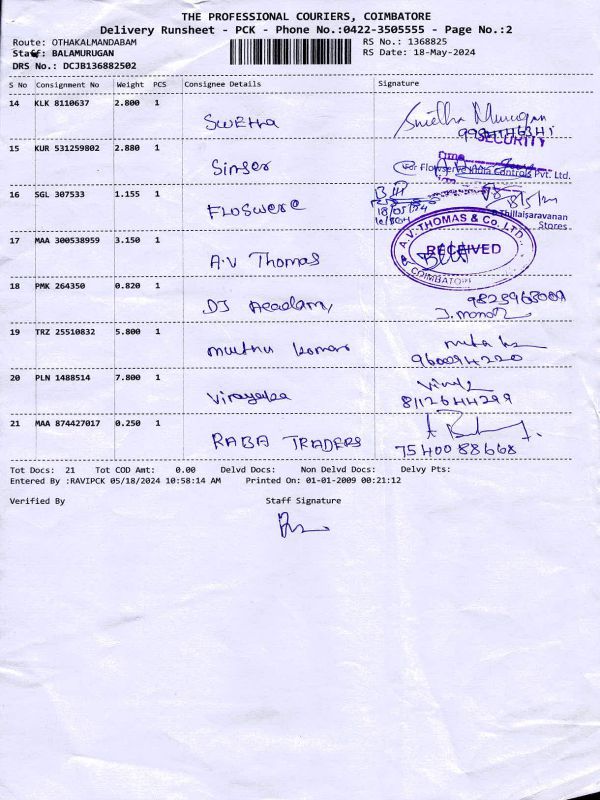 THE PROFESSIONAL COURIERS, COIMBATORE
Delivery Runsheet - PCK - Phone No.:0422-3505555 - Page No.:2
Route: OTHAKALMANDABAM RS No.: 1368825
Staff: BALAMURUGAN RS Date: 18-May-2024
DRS No.: DCJB136882502
S No Consignment No Weight PCS Consignee Details Signature
14 KLK 8110637 2.800 1 Swetha
15 KUR 531259802 2.880 1 Singer
SECURITY
For Flowserve India Controls Pvt. Ltd.
16 SGL 307533 1.155 1 FLOSwere
18/05/24
Thillaisaravanan
Stores
17 MAA 300538959 3.150 1 A.V Thomas
A.V. THOMAS & Co. LTD.,
RECEIVED
COIMBATORE
18 PMK 264350 0.820 1 DJ Acadamy
19 TRZ 25510832 5.800 1 muthu kumar
9600094220
20 PLN 1488514 7.800 1 Vinayaka
8112644299
21 MAA 874427017 0.250 1 RABA TRADERS
7540088668
Tot Docs: 21 Tot COD Amt: 0.00 Delvd Docs: Non Delvd Docs: Delvy Pts:
Entered By :RAVIPCK 05/18/2024 10:58:14 AM Printed On: 01-01-2009 00:21:12
Verified By Staff Signature